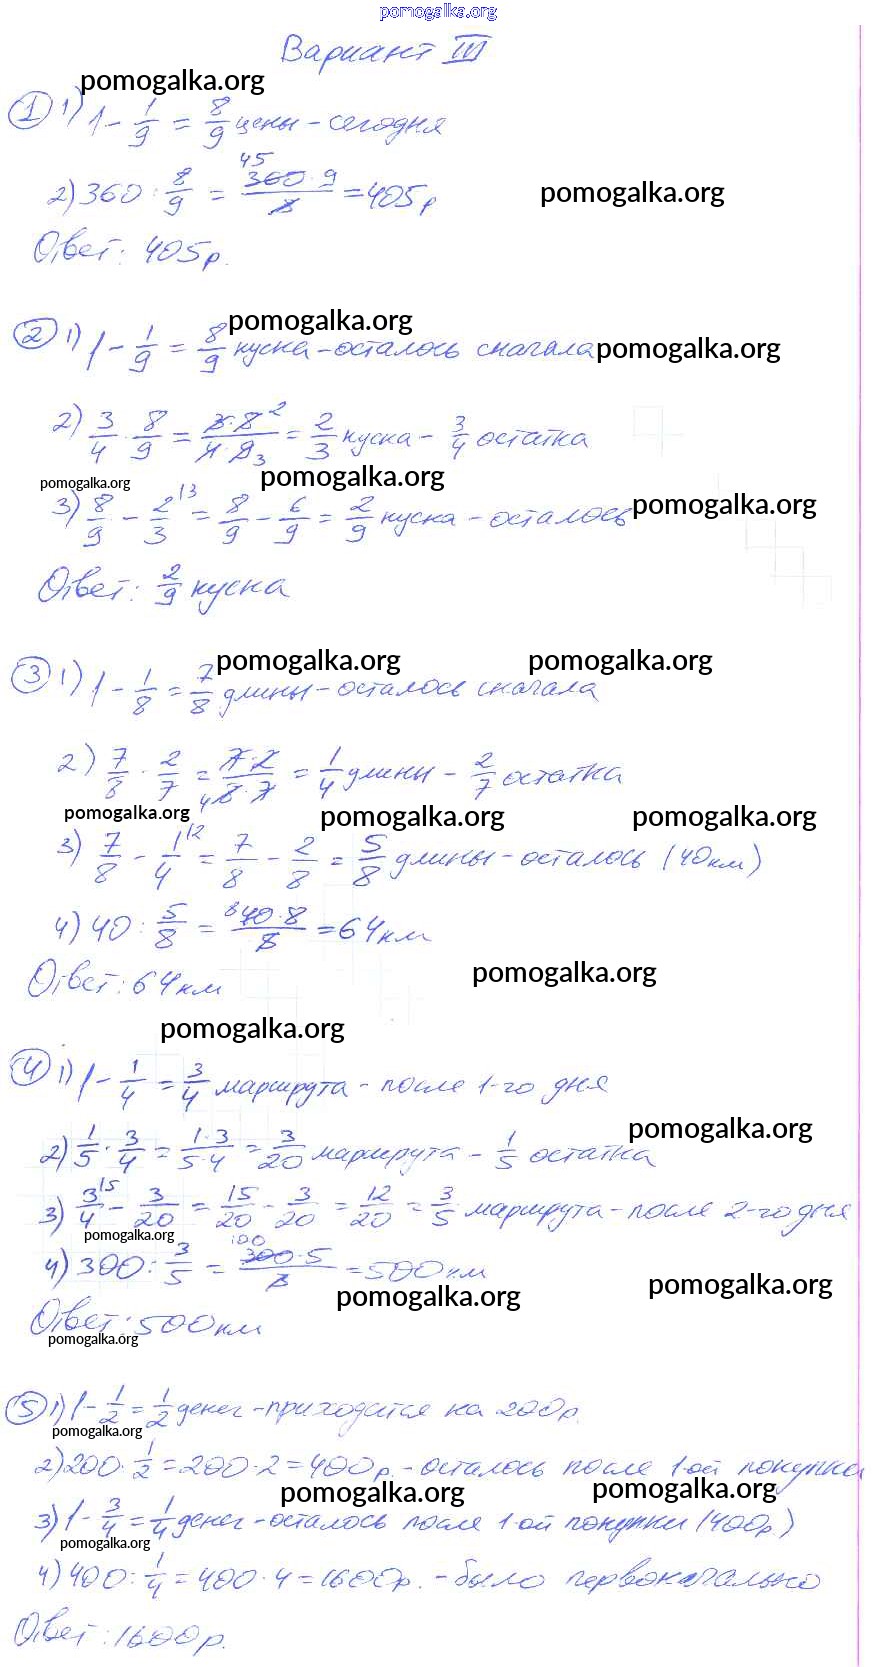 pomogalka.org
Вариант III
pomogalka.org
① 1) 1 - 1/9 = 8/9 цены - сегодня
2) 360 : 8/9 = 360^45 · 9 / 8 = 405 р pomogalka.org
Ответ: 405 р.
② 1) 1 - 1/9 = 8/9 куска - осталось сначала pomogalka.org pomogalka.org
2) 3/4 · 8/9 = 3·8^2 / 4·9_3 = 2/3 куска - 3/4 остатка
pomogalka.org pomogalka.org
3) 8/9 - 2/3^\3 = 8/9 - 6/9 = 2/9 куска - осталось pomogalka.org
Ответ: 2/9 куска
pomogalka.org pomogalka.org
③ 1) 1 - 1/8 = 7/8 длины - осталось сначала
2) 7/8 · 2/7 = 7·2 / _4 8·7 = 1/4 длины - 2/7 остатка
pomogalka.org pomogalka.org pomogalka.org
3) 7/8 - 1/4^\2 = 7/8 - 2/8 = 5/8 длины - осталось (40 км)
4) 40 : 5/8 = ^8 40·8 / 5 = 64 км
Ответ: 64 км pomogalka.org
pomogalka.org
④ 1) 1 - 1/4 = 3/4 маршрута - после 1-го дня
pomogalka.org
2) 1/5 · 3/4 = 1·3 / 5·4 = 3/20 маршрута - 1/5 остатка
3) 3/4^\5 - 3/20 = 15/20 - 3/20 = 12/20 = 3/5 маршрута - после 2-го дня
pomogalka.org
4) 300 : 3/5 = 300^100 · 5 / 3 = 500 км
pomogalka.org pomogalka.org
Ответ: 500 км
pomogalka.org
⑤ 1) 1 - 1/2 = 1/2 денег - приходится на 200 р.
pomogalka.org
2) 200 · 1/2 = 200 · 2 = 400 р. - осталось после 1-ой покупки
pomogalka.org pomogalka.org
3) 1 - 3/4 = 1/4 денег - осталось после 1-ой покупки (400 р.)
pomogalka.org
4) 400 : 1/4 = 400 · 4 = 1600 р. - было первоначально
Ответ: 1600 р.